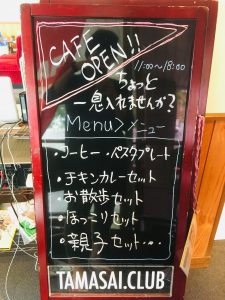 CAFE
OPEN!!
11:00~18:00
ちょっと
一息入れませんか?
Menu>メニュー
・コーヒー・パスタプレート
・チキンカレーセット
・お散歩セット
・ほっこりセット
・親子セット・・・
TAMASAI.CLUB